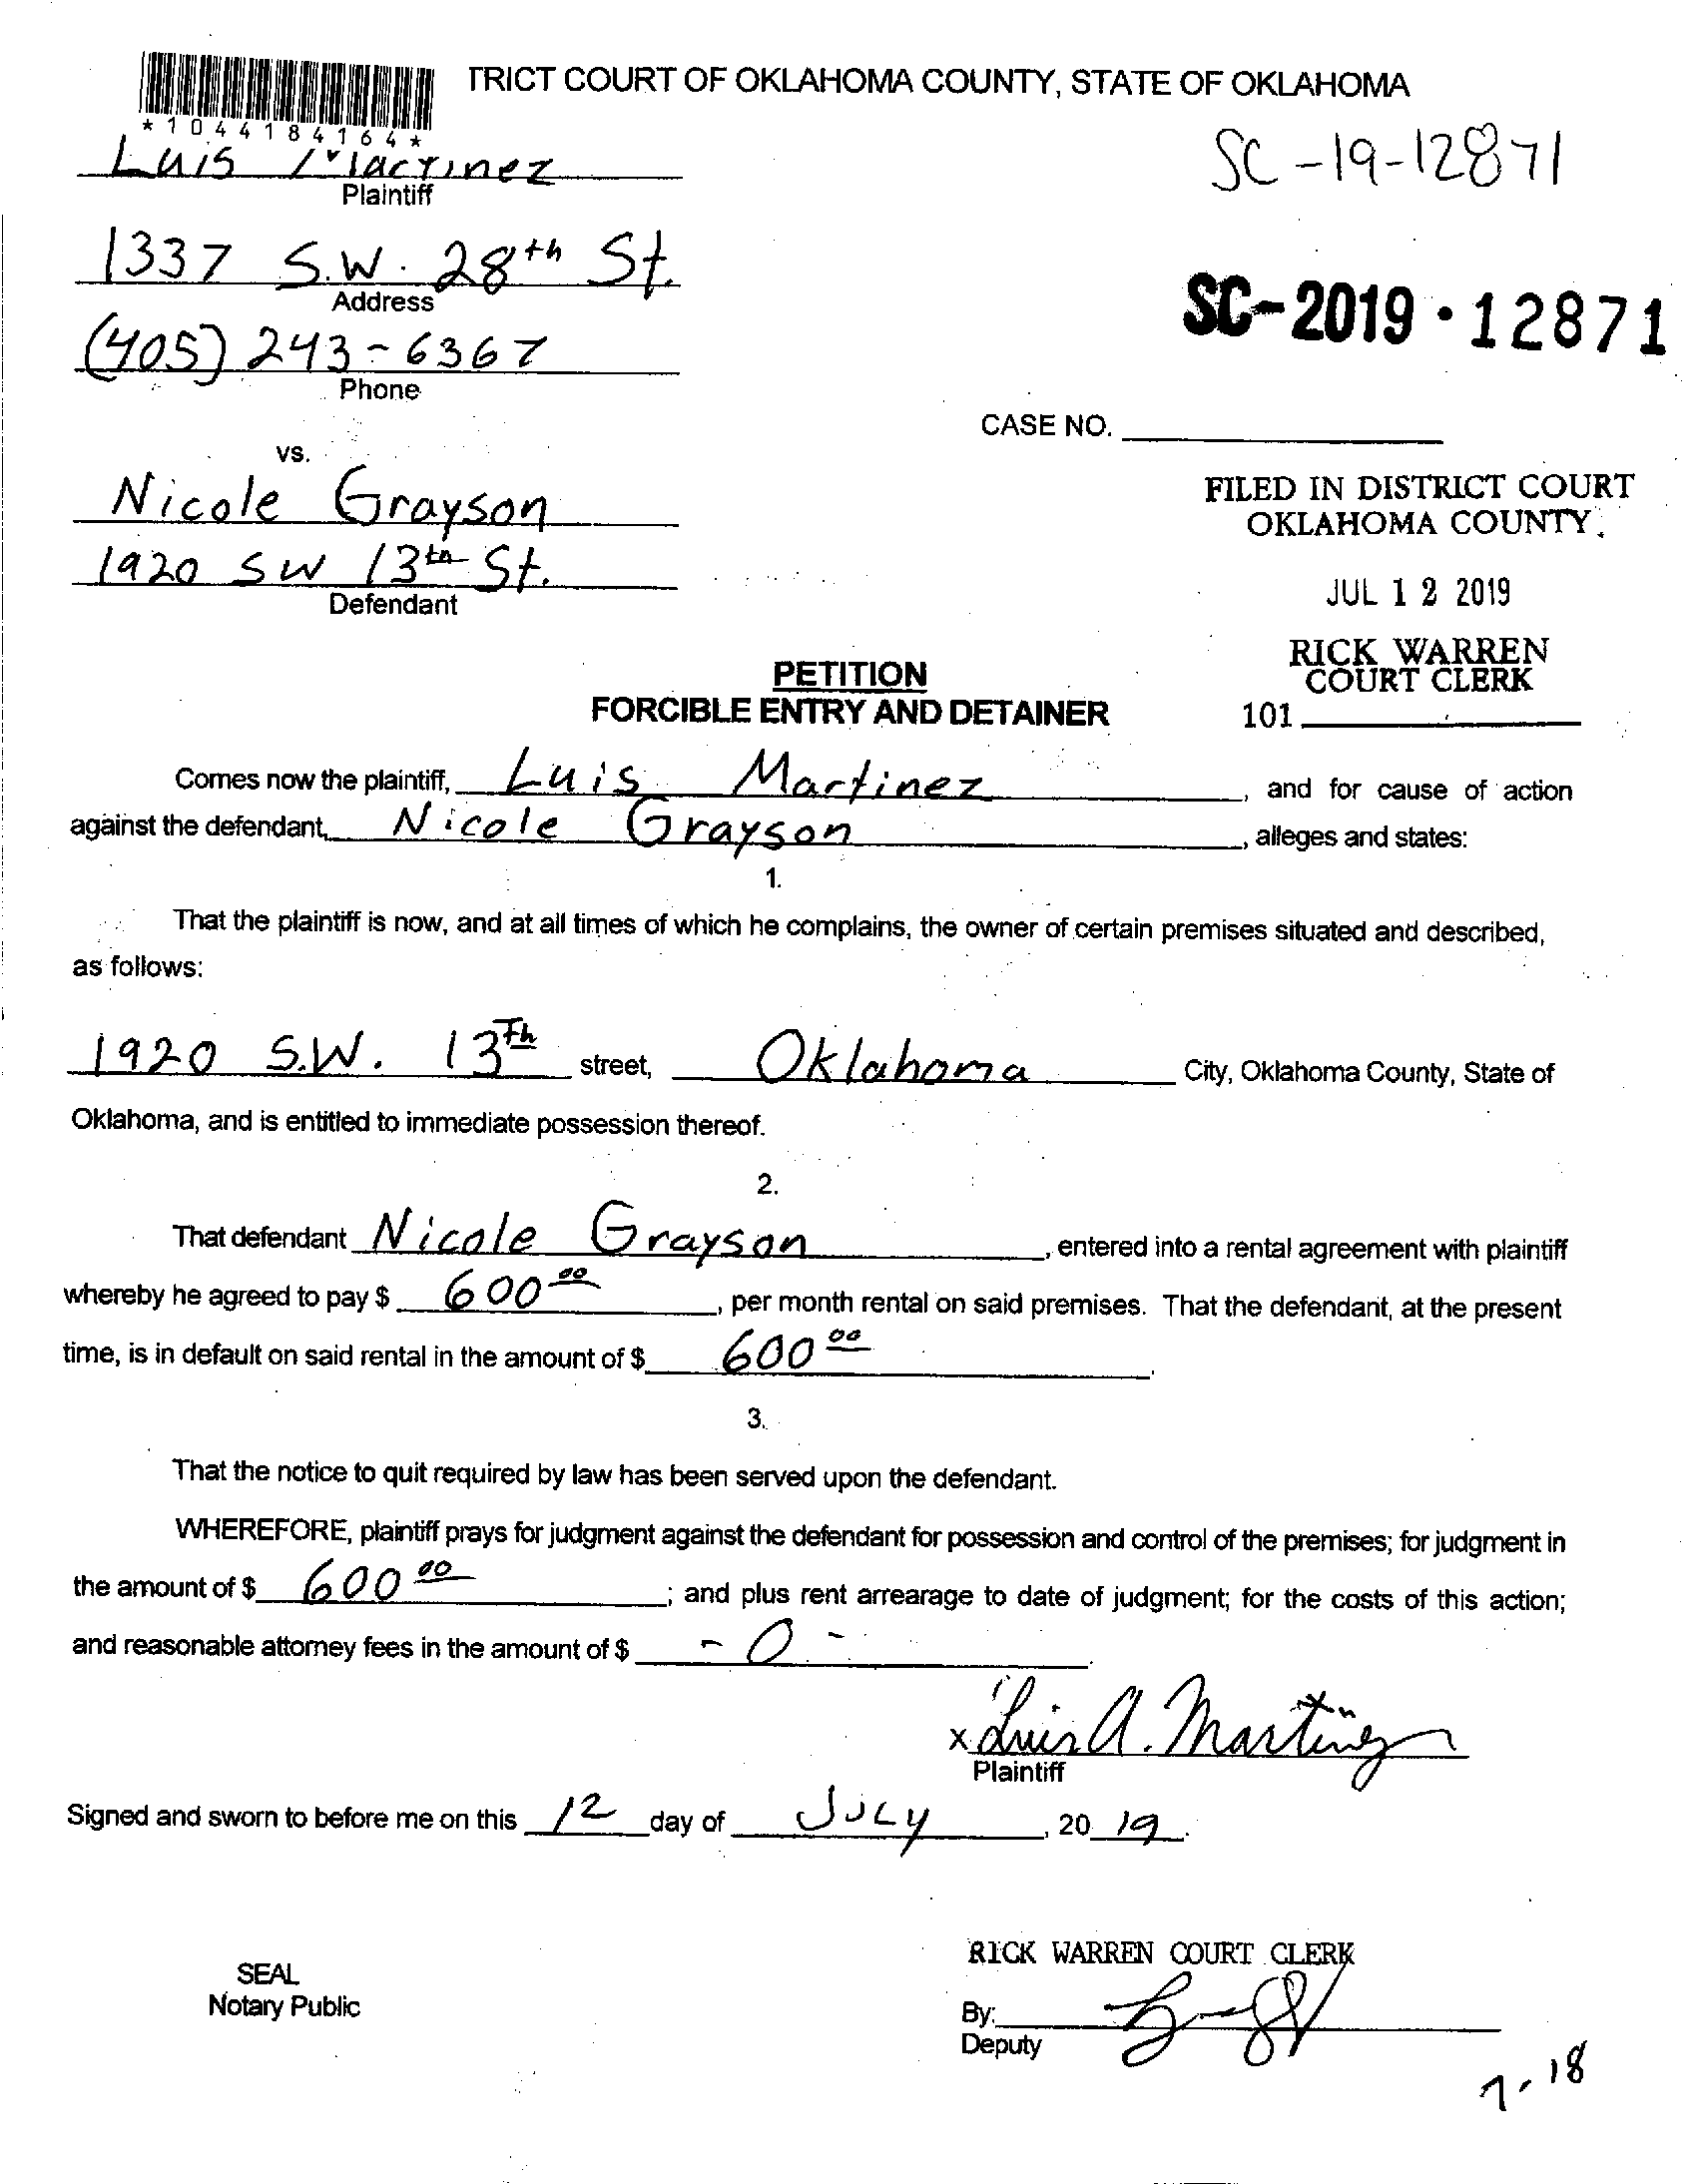 TRICT COURT OF OKLAHOMA COUNTY, STATE OF OKLAHOMA
*1044184164*
Luis Martinez
Plaintiff
SC-19-12871
1337 S.W. 28th St.
Address
SC-2019-12871
(405) 243-6367
Phone
CASE NO.
vs.
Nicole Grayson
FILED IN DISTRICT COURT
OKLAHOMA COUNTY.
1920 SW 13th St.
Defendant
JUL 12 2019
RICK WARREN
COURT CLERK
101
PETITION
FORCIBLE ENTRY AND DETAINER
Comes now the plaintiff, Luis Martinez, and for cause of action
against the defendant, Nicole Grayson, alleges and states:
1.
That the plaintiff is now, and at all times of which he complains, the owner of certain premises situated and described,
as follows:
1920 S.W. 13Th street, Oklahoma City, Oklahoma County, State of
Oklahoma, and is entitled to immediate possession thereof.
2.
That defendant Nicole Grayson, entered into a rental agreement with plaintiff
whereby he agreed to pay $ 600 00, per month rental on said premises. That the defendant, at the present
time, is in default on said rental in the amount of $ 600 00.
3.
That the notice to quit required by law has been served upon the defendant.
WHEREFORE, plaintiff prays for judgment against the defendant for possession and control of the premises; for judgment in
the amount of $ 600 00; and plus rent arrearage to date of judgment; for the costs of this action;
and reasonable attorney fees in the amount of $ -0-.
x Luis A. Martinez
Plaintiff
Signed and sworn to before me on this 12 day of JULY, 20 19.
RICK WARREN COURT CLERK
SEAL
Notary Public
By:
Deputy
7-18